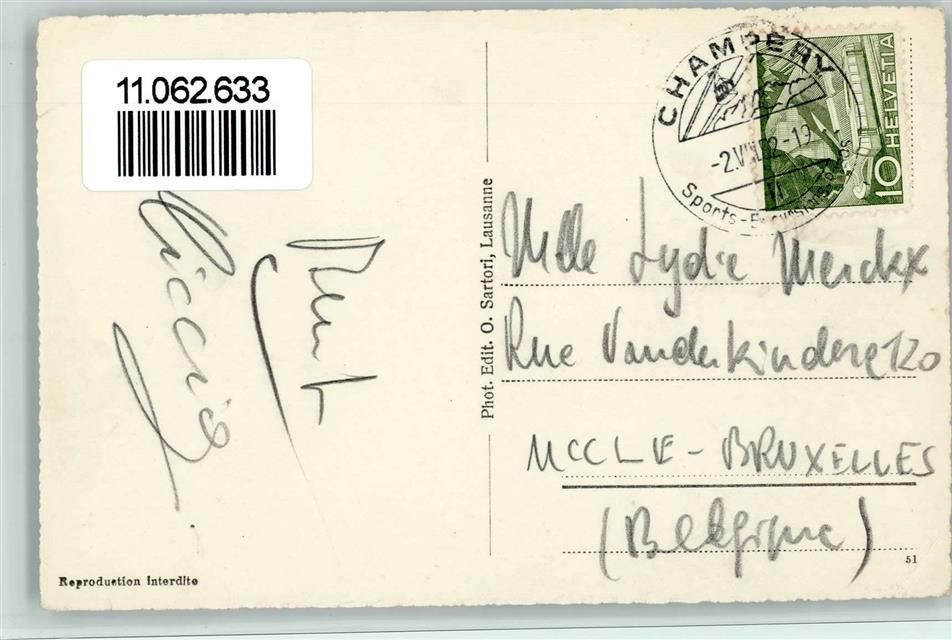 11.062.633
CHAMPERY
-2.VIII.52-19
Sports-Excursions
HELVETIA
10
Phot. Edit. O. Sartori, Lausanne
Mlle Lydie Merckx
Rue Vanderkindere 120
UCCLE - BRUXELLES
(Belgique)
51
Reproduction Interdite